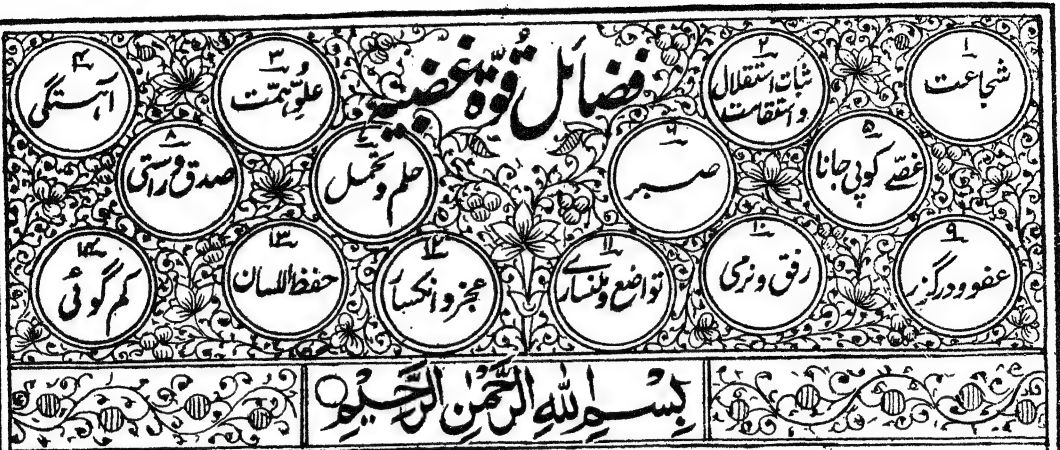 فضائل قوّۂ غضبیہ
۱ شجاعت
۲ ثبات استقلال
و استقامت
۳ علوِ ہمّت
۴ آہستگی
۵ غصّے کو پی جانا
۶ صبر
۷ حلم و تحمل
۸ صدق و راستی
۹ عفو و درگزر
۱۰ رفق و نرمی
۱۱ تواضع و ملنساری
۱۲ عجز و انکسار
۱۳ حفظ اللسان
۱۴ کم گوئی
بِسْمِ اللهِ الرَّحْمٰنِ الرَّحِيْمِ